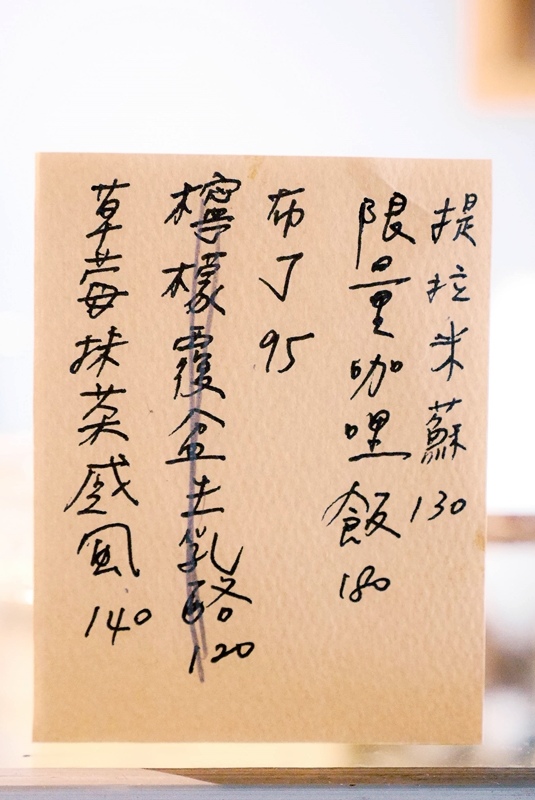 提拉米蘇130
限量咖哩飯180
布丁95
檸檬覆盆土乳酪120
草莓抹茶戚風140